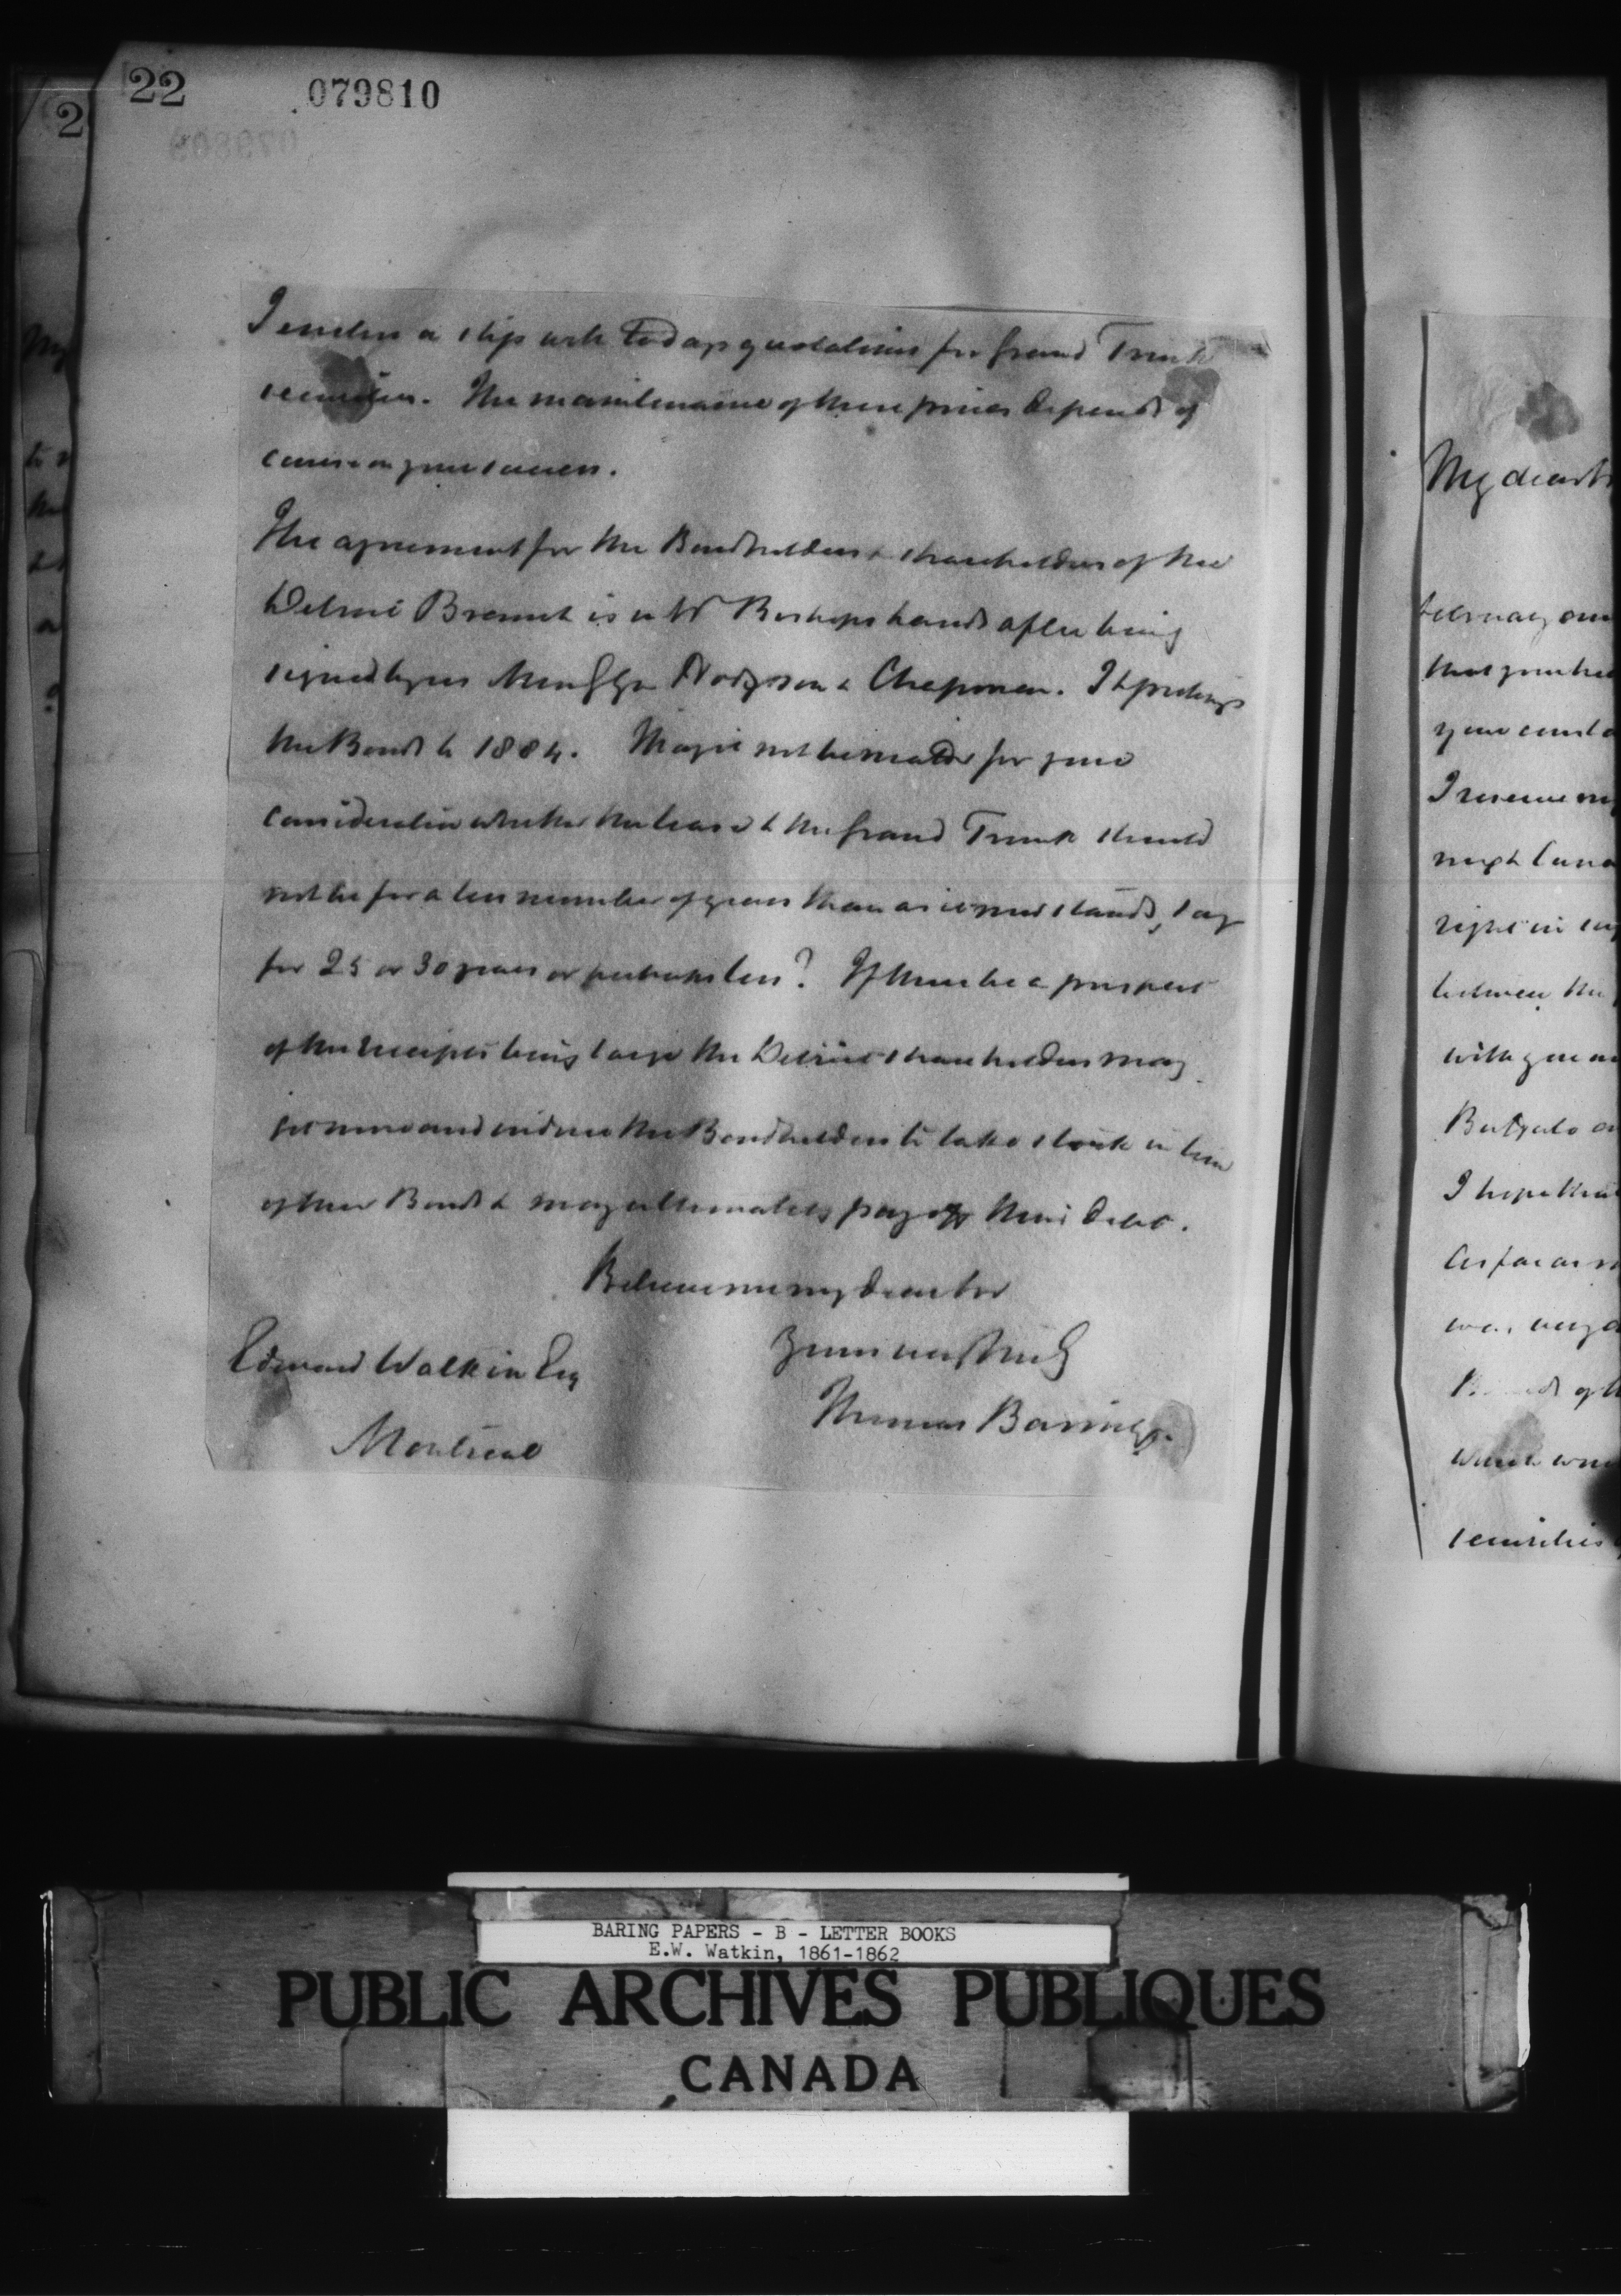 22
079810
2
I enclose a slip with today's quotations for Grand Trunk
securities. The maintenance of these prices depends of
course on your success.
The agreement for the Bondholders & shareholders of the
Detroit Branch is in Mr Bischops hands after being
signed by us Hodgson & Chapman. It prolongs
the Bonds to 1884. May it not be matter for your
consideration whether the lease to the Grand Trunk should
not be for a less number of years than as it now stands, say
for 25 or 30 years or perhaps less? If there be a prospect
of the receipts being large the Detroit shareholders may
and induce the Bondholders to take stock in lieu
of their Bonds & may ultimately pay off their debt.
Believe me my dear Sir
Yours very truly
Thomas Baring
Edward Watkin Esq
Montreal
My dear
that you
your
I
right in
between the
with you
Buffalo
I hope
As far as
was very
securities
BARING PAPERS - B - LETTER BOOKS
E.W. Watkin, 1861-1862
PUBLIC ARCHIVES PUBLIQUES
CANADA